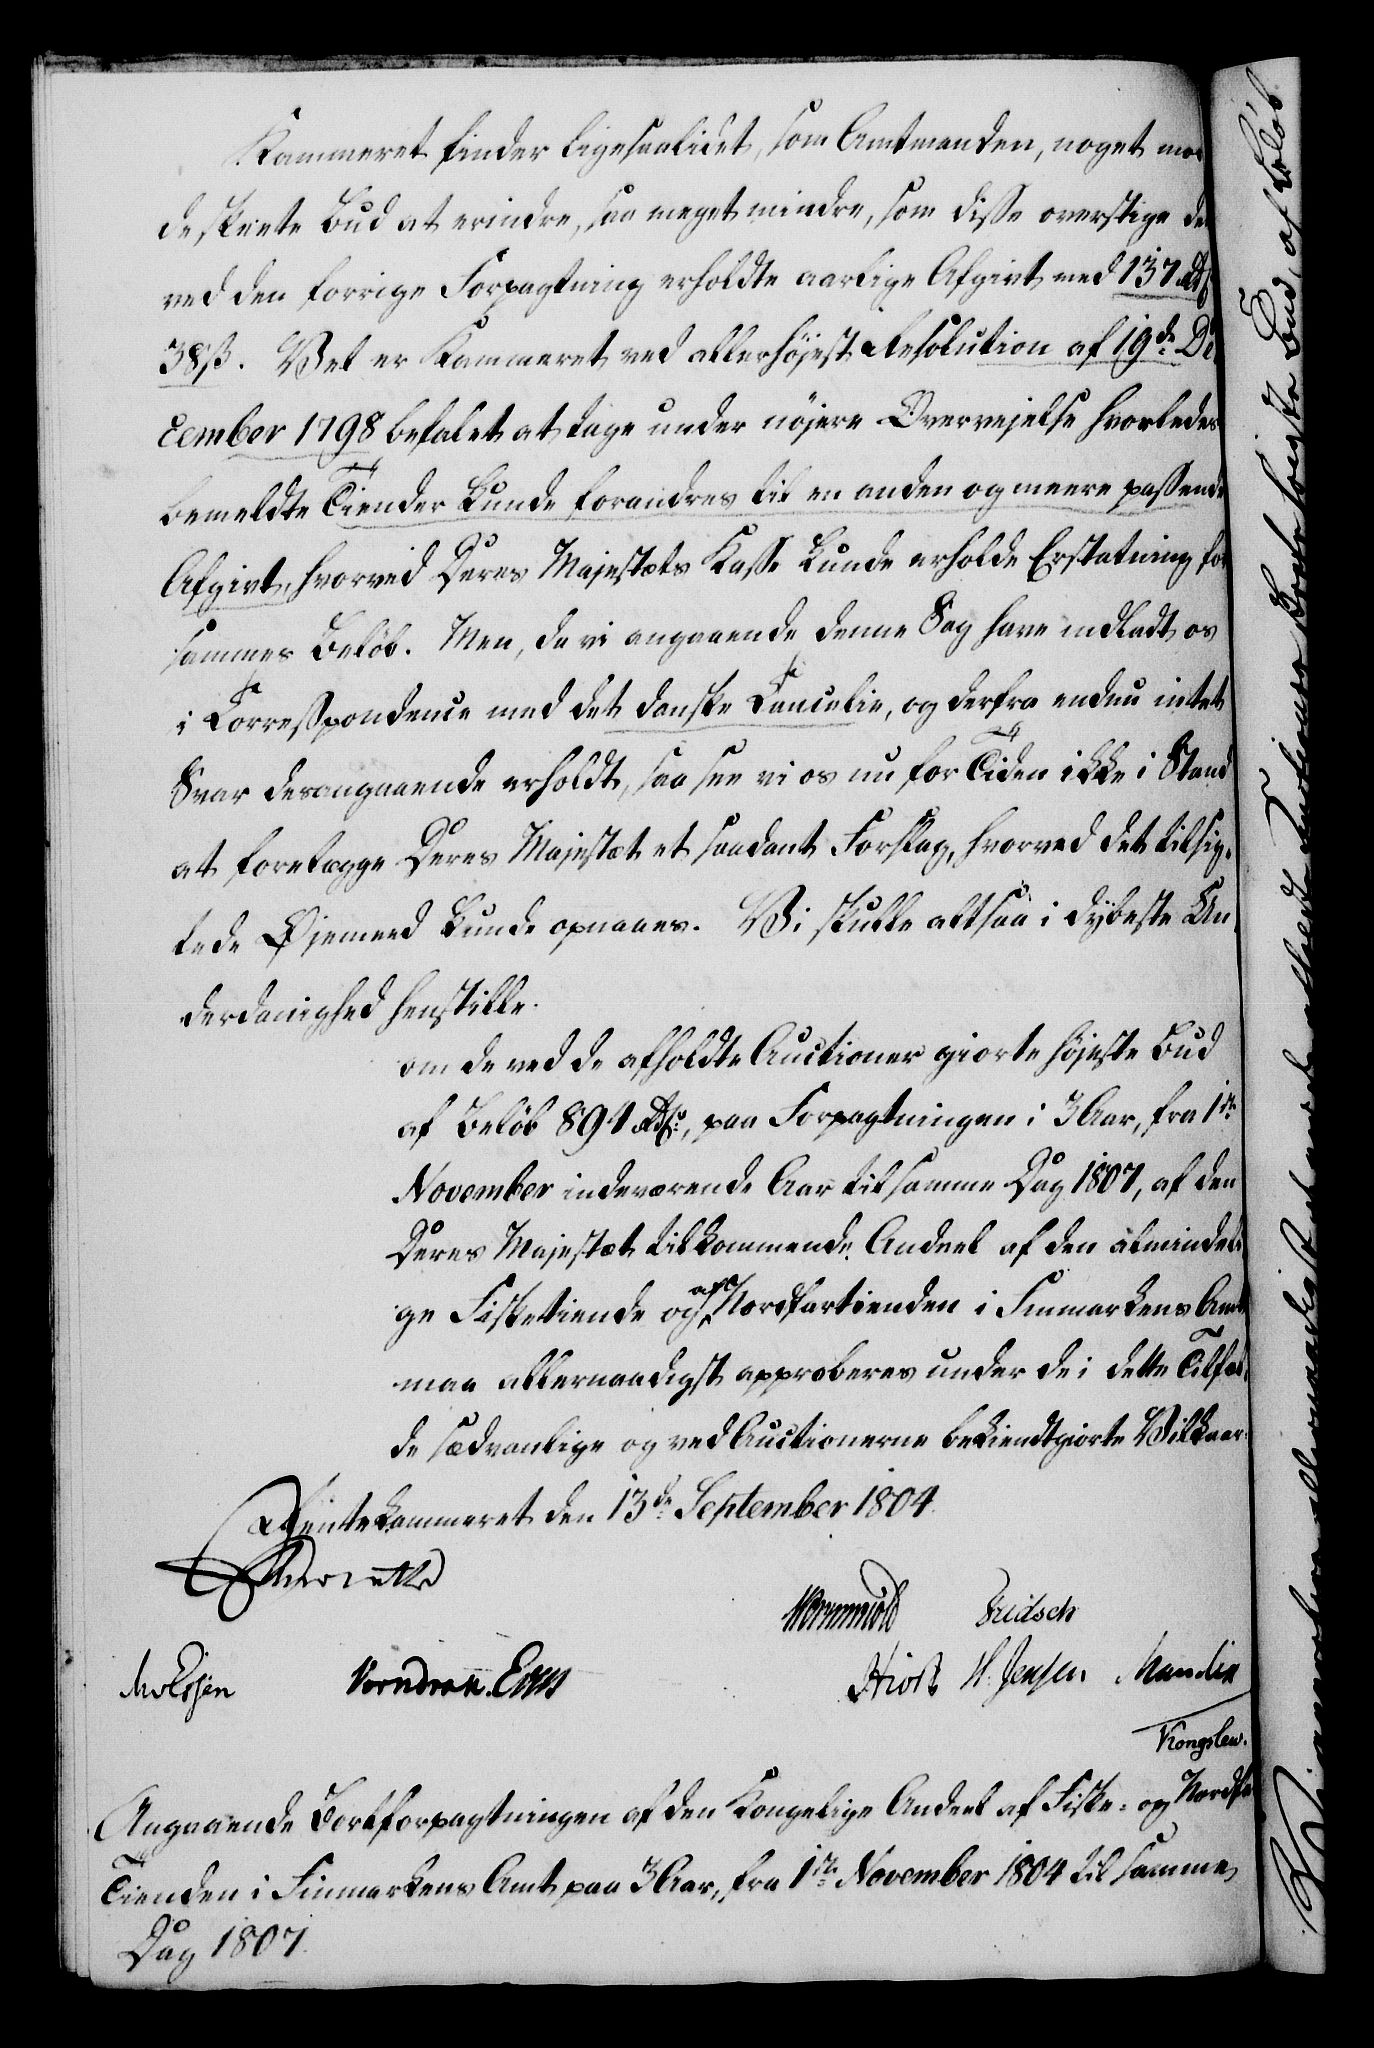 Kammeret finder ligesaalidet, som Amtmanden, noget mod
de skeete Bud at erindre, saa meget mindre, som disse overstige de
ved den forrige Forpagtning erholdte aarlige Afgivt med 137 Rd
38 ß. Vel er Kammeret ved allerhøjest Resolution af 19de De
cember 1798 befalet at tage under nøjere Overvejelse hvorledes
bemeldte Tiender kunde forandres til en anden og meere passende
Afgivt, hvorved Deres Majestæts Kasse kunde erholde Erstatning for
sammes Beløb. Men, da vi angaaende denne Sag have indladt os
i Correspondence med det danske Cancelie, og derfra endnu intet
Svar desangaaende erholdt, saa see vi os nu for Tiden ikke i Stand
at forelægge Deres Majestæt et saadant Forslag, hvorved det tilsig-
tede Øjemeed kunde opnaaes. Vi skulle altsaa i dybeste Un-
derdanighed henstille.
om de ved de afholdte Auctioner giorte højeste Bud
af Beløb 894 Rd, paa Forpagtningen i 3 Aar, fra 1te
November indeværende Aar til samme Dag 1807, af den
Deres Majestæt tilkommende Andeel af den almindeli-
ge Fisketiende og af Nordfartienden i Finmarkens Amt
maa allernaadigst approberes under de i dette Tilfæl-
de sædvanlige og ved Auctionerne bekiendtgiorte Vilkaar.
Rentekammeret den 13de September 1804.
Wormskiold Fridsch
Hiort H. Jensen Mandix
Kongslew.
Angaaende Bortforpagtningen af den Kongelige Andeel af Fiske- og Nordfar
Tienden i Finmarkens Amt paa 3 Aar, fra 1te November 1804 til samme
Dag 1807.